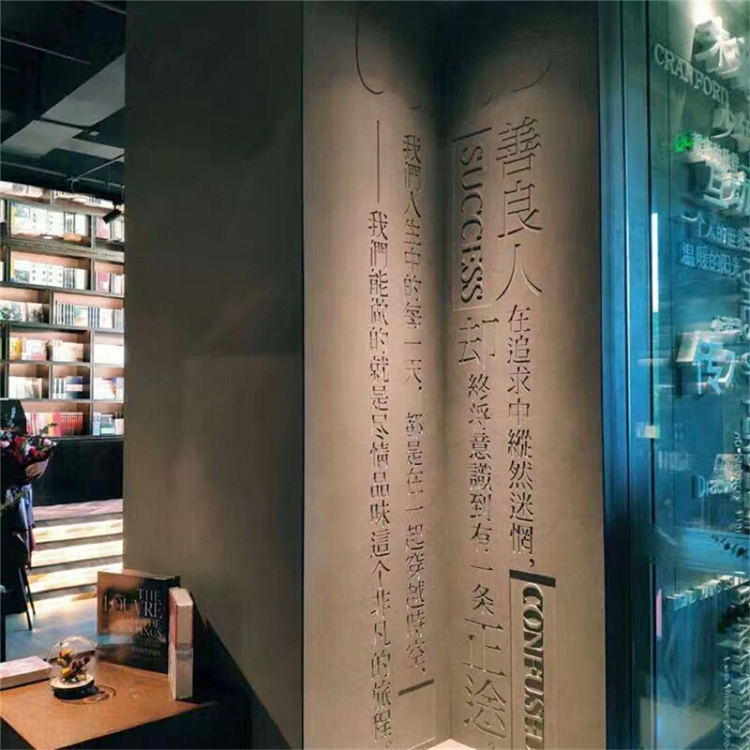 善良人在追求中縱然迷惘，
CONFUSED
SUCCESS
却終將意識到有一条正途。
我們人生中的每一天，都是在一起穿越時空，
——我們能做的就是尽情品味這个非凡的旅程。
CRANFORD
互动
一个人的世
温暖的阳光
传
THE
LOUVRE
THE